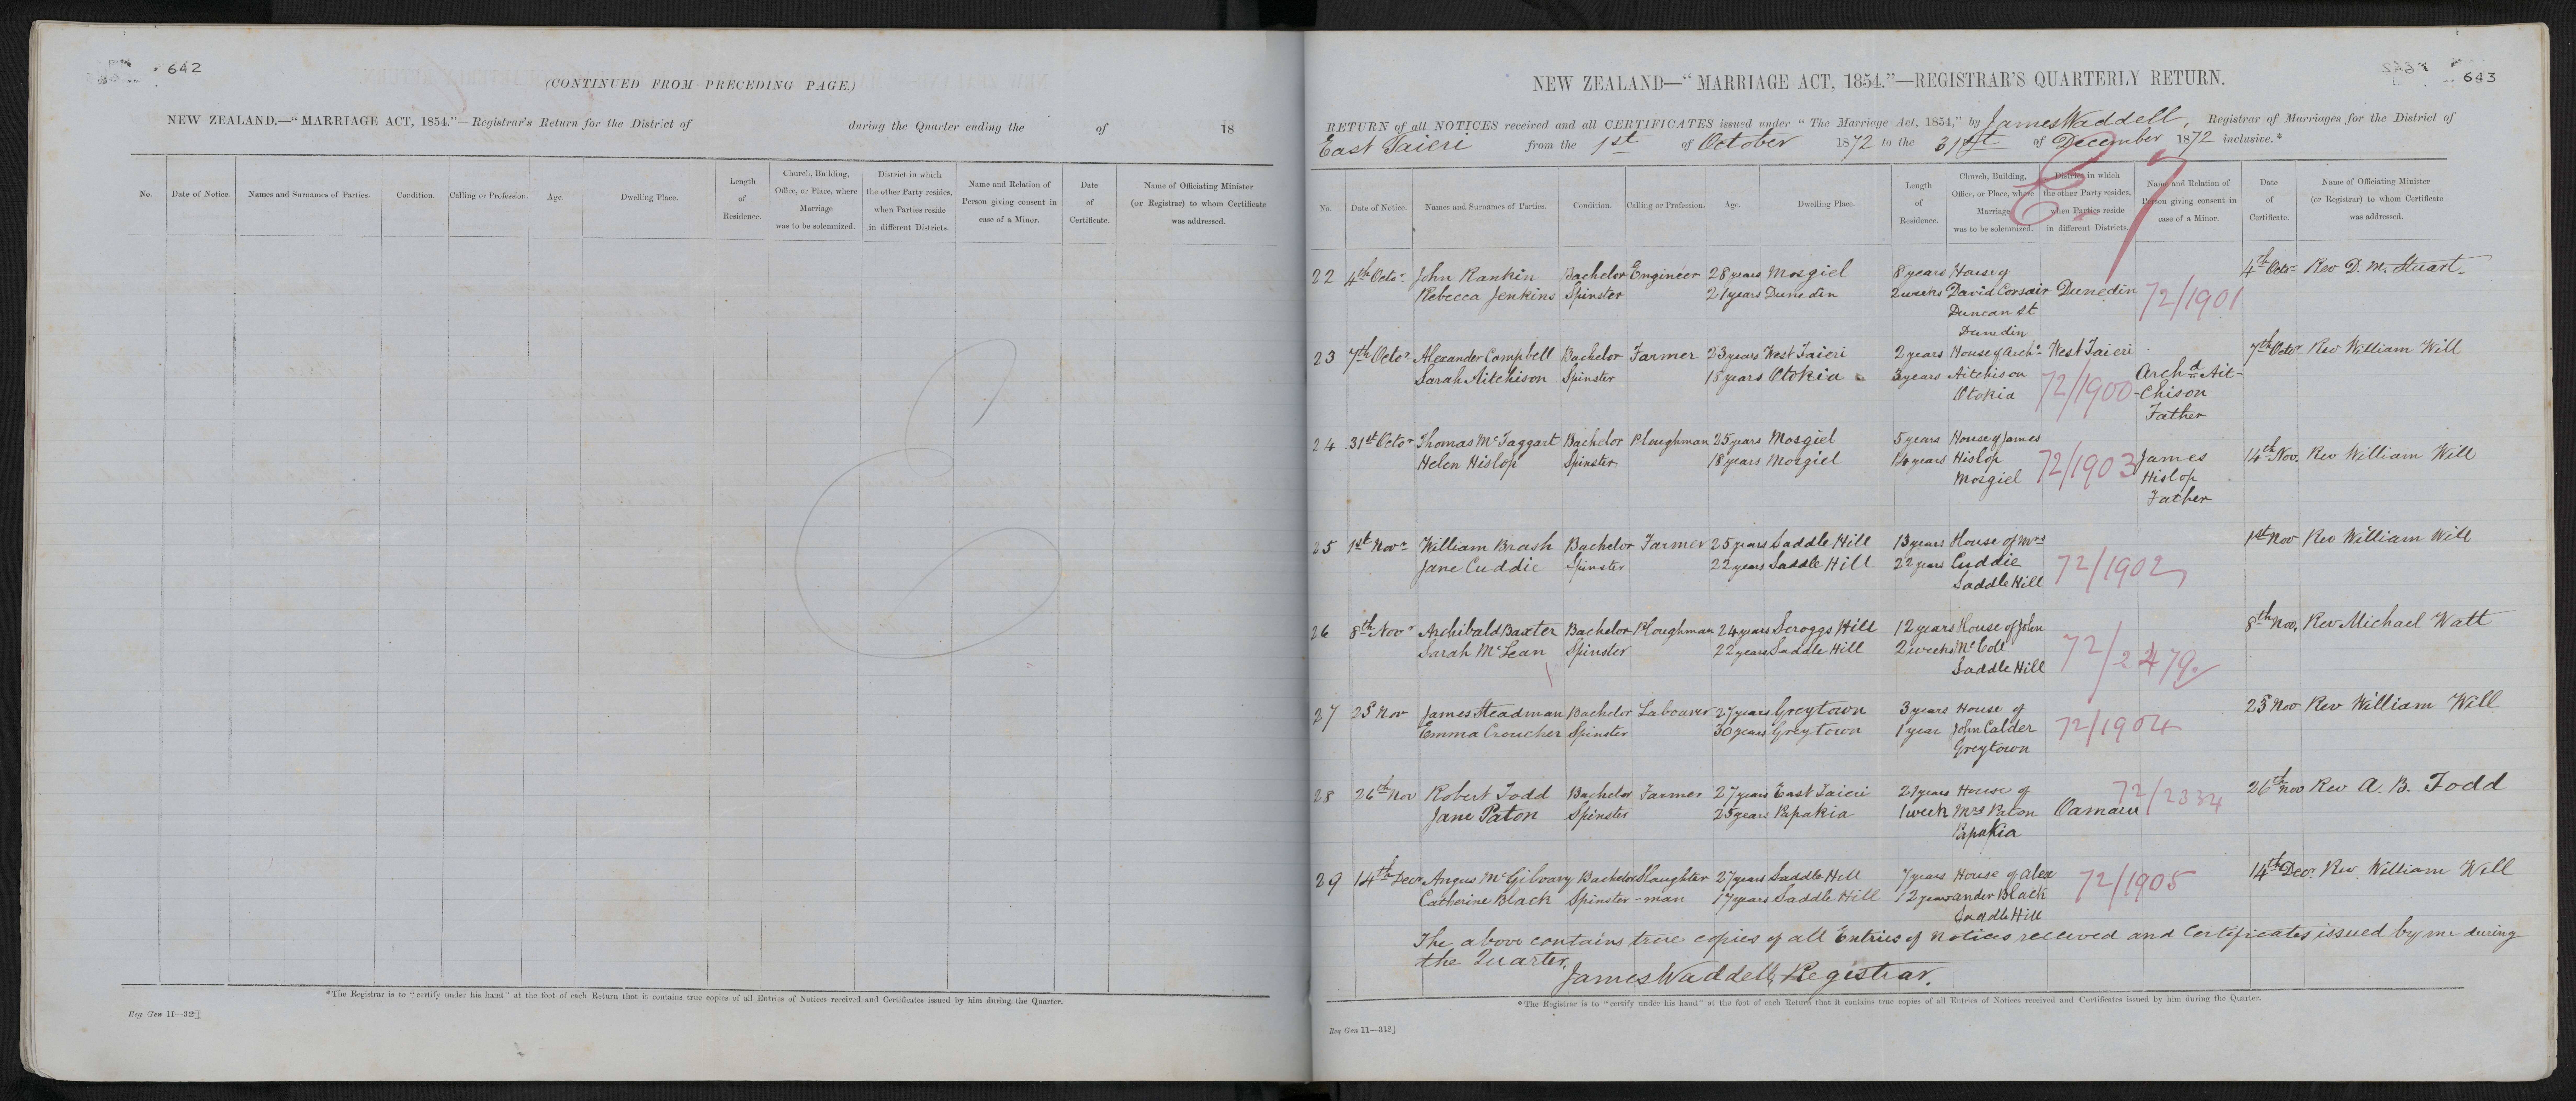 642
(CONTINUED FROM PRECEDING PAGE.)
NEW ZEALAND.—"MARRIAGE ACT, 1854."—Registrar's Return for the District of during the Quarter ending the of 18
No. Date of Notice. Names and Surnames of Parties. Condition. Calling or Profession. Age. Dwelling Place. Length of Residence. Church, Building, Office, or Place, where Marriage was to be solemnized. District in which the other Party resides, when Parties reside in different Districts. Name and Relation of Person giving consent in case of a Minor. Date of Certificate. Name of Officiating Minister (or Registrar) to whom Certificate was addressed.
*The Registrar is to "certify under his hand" at the foot of each Return that it contains true copies of all Entries of Notices received and Certificates issued by him during the Quarter.
Reg Gen 11—32]
643
NEW ZEALAND—"MARRIAGE ACT, 1854."—REGISTRAR'S QUARTERLY RETURN.
RETURN of all NOTICES received and all CERTIFICATES issued under "The Marriage Act, 1854," by James Waddell, Registrar of Marriages for the District of
East Taieri from the 1st of October 1872 to the 31st of December 1872 inclusive.*
No. Date of Notice. Names and Surnames of Parties. Condition. Calling or Profession. Age. Dwelling Place. Length of Residence. Church, Building, Office, or Place, where Marriage was to be solemnized. District in which the other Party resides, when Parties reside in different Districts. Name and Relation of Person giving consent in case of a Minor. Date of Certificate. Name of Officiating Minister (or Registrar) to whom Certificate was addressed.
22 4th Octo John Rankin Bachelor Engineer 28 years Mosgiel 8 years House of 4th Octo Rev D. M. Stuart
Rebecca Jenkins Spinster 21 years Dunedin 2 weeks David Corsair Dunedin 72/1901
Duncan St
Dunedin
23 7th Octo Alexander Campbell Bachelor Farmer 23 years West Taieri 2 years House of Archd West Taieri 7th Octo Rev William Will
Sarah Aitchison Spinster 18 years Otokia 3 years Aitchison 72/1900 Archd Ait-
Otokia -chison
Father
24 31st Octo Thomas McTaggart Bachelor Ploughman 25 years Mosgiel 5 years House of James 14th Nov. Rev William Will
Helen Hislop Spinster 18 years Mosgiel 14 years Hislop 72/1903 James
Mosgiel Hislop
Father
25 1st Novr William Brash Bachelor Farmer 25 years Saddle Hill 13 years House of Mrs 1st Nov Rev William Will
Jane Cuddie Spinster 22 years Saddle Hill 22 years Cuddie 72/1902
Saddle Hill
26 8th Novr Archibald Baxter Bachelor Ploughman 24 years Scroggs Hill 12 years House of John 8th Nov. Rev Michael Watt
Sarah McLean Spinster 22 years Saddle Hill 2 weeks McColl 72/2479
Saddle Hill
27 23 Nov James Steadman Bachelor Labourer 27 years Greytown 3 years House of 23 Nov Rev William Will
Emma Croucher Spinster 30 years Greytown 1 year John Calder 72/1904
Greytown
28 26th Nov Robert Todd Bachelor Farmer 27 years East Taieri 21 years House of 72/2334 26th Nov Rev A. B. Todd
Jane Paton Spinster 25 years Papakia 1 week Mrs Paton Oamaru
Papakia
29 14th Decr Angus McGilvary Bachelor Slaughter 27 years Saddle Hill 7 years House of Alex 72/1905 14th Decr Rev William Will
Catherine Black Spinster -man 17 years Saddle Hill 12 years ander Black
Saddle Hill
The above contains true copies of all Entries of Notices received and Certificates issued by me during
the Quarter.
James Waddell, Registrar.
*The Registrar is to "certify under his hand" at the foot of each Return that it contains true copies of all Entries of Notices received and Certificates issued by him during the Quarter.
Reg Gen 11—312]